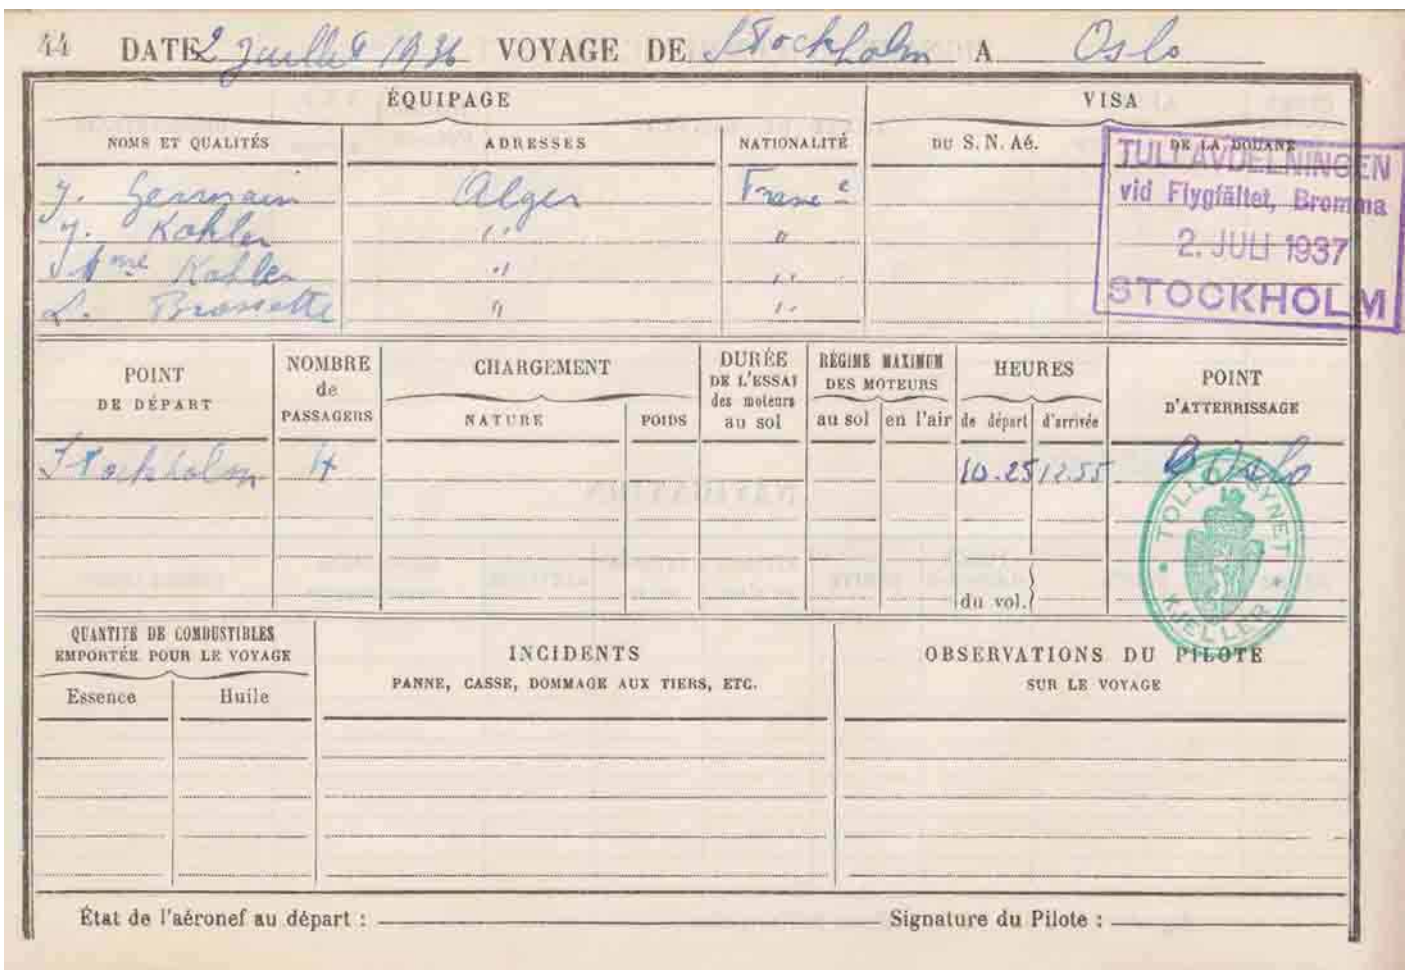 44 DATE 2 Juillet 1936 VOYAGE DE Stockholm A Oslo
ÉQUIPAGE VISA
NOMS ET QUALITÉS ADRESSES NATIONALITÉ DU S. N. Aé. DE LA DOUANE
J. Germain Alger Franc e
J. Kohler " "
Mme Kohler " "
L. Brossette " "
TULLAVDELNINGEN
vid Flygfältet, Bromma
2. JULI 1937
STOCKHOLM
POINT DE DÉPART
NOMBRE de PASSAGERS
CHARGEMENT
NATURE POIDS
DURÉE DE L'ESSAI des moteurs au sol
RÉGIME MAXIMUM DES MOTEURS
au sol en l'air
HEURES
de départ d'arrivée
POINT D'ATTERRISSAGE
Stockholm 4 10.25 12.55 Oslo
KJELLER
du vol.
QUANTITÉ DE COMBUSTIBLES
EMPORTÉE POUR LE VOYAGE
Essence Huile
INCIDENTS
PANNE, CASSE, DOMMAGE AUX TIERS, ETC.
OBSERVATIONS DU PILOTE
SUR LE VOYAGE
État de l'aéronef au départ : Signature du Pilote :